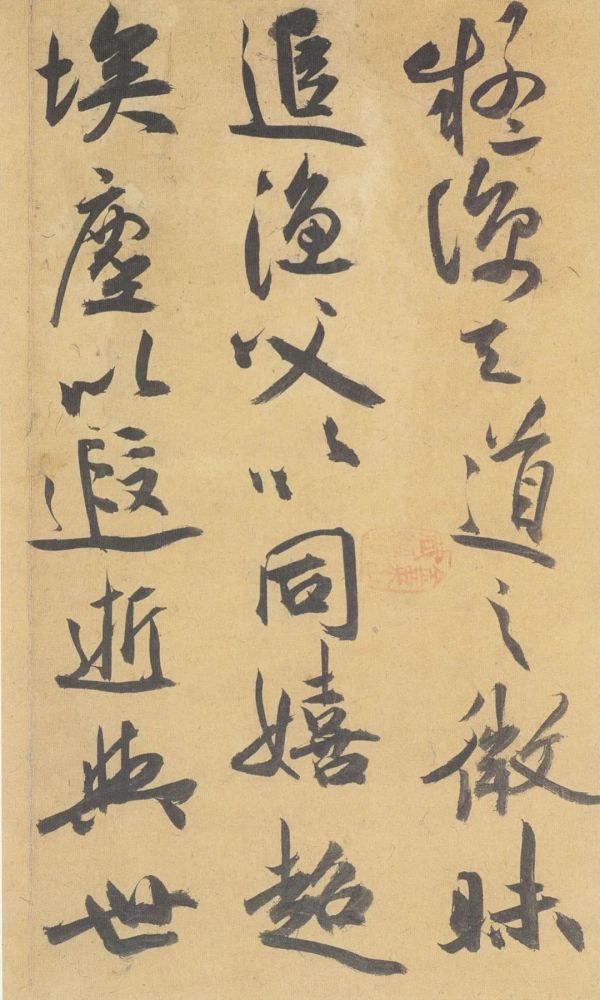 疑諒天道之微昧
追漁父以同嬉超
埃塵以遐逝與世